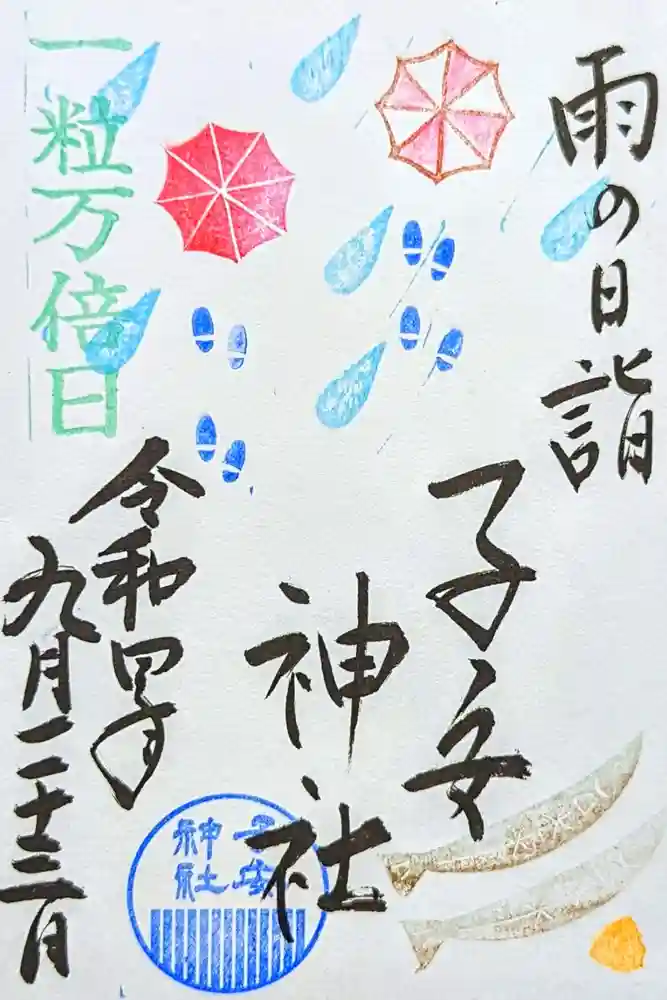 雨の日詣
子安
神社
子安
神社
一粒万倍日
令和四年
九月二十三日